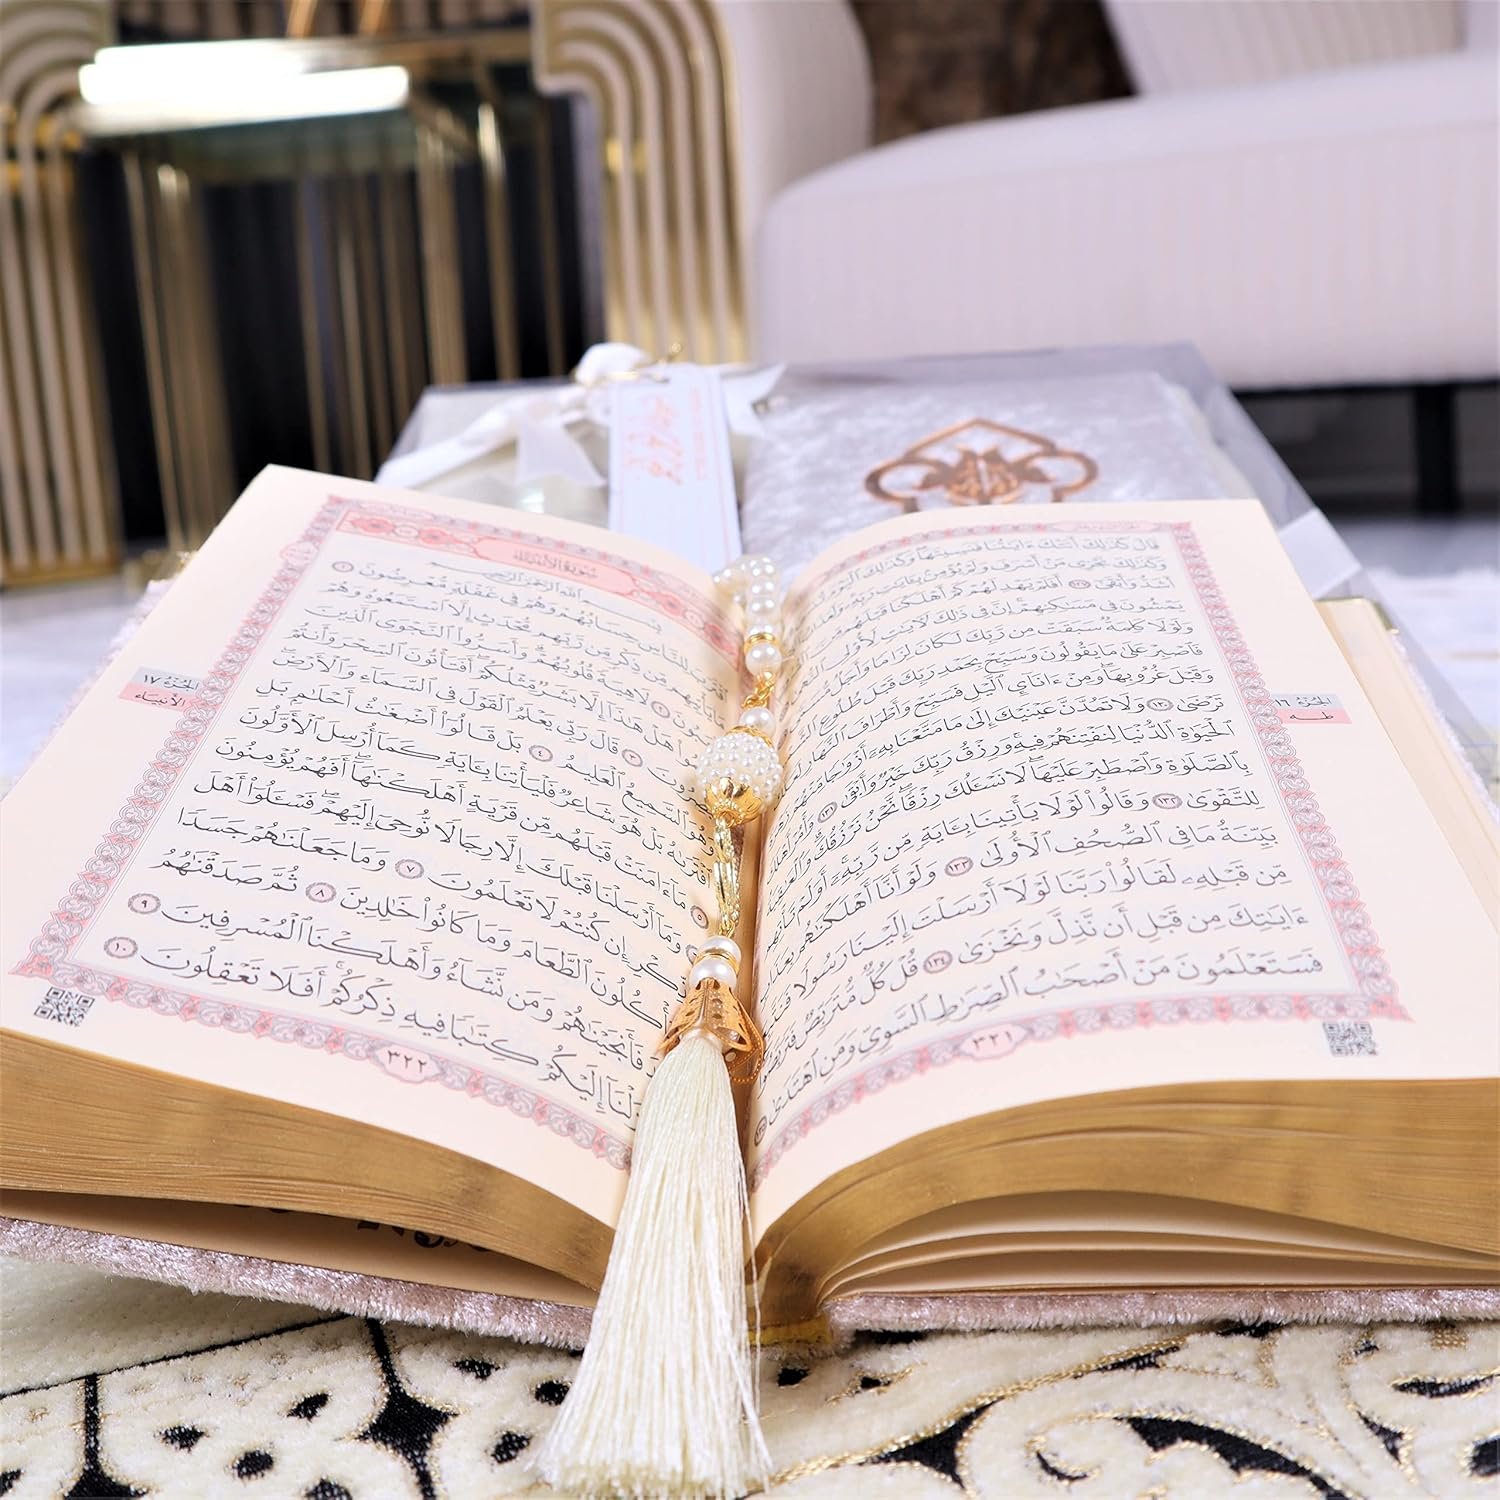 قَالَ كَذَٰلِكَ أَتَتْكَ ءَايَٰتُنَا فَنَسِيتَهَا وَكَذَٰلِكَ ٱلْيَوْمَ
وَكَذَٰلِكَ نَجْزِى مَنْ أَسْرَفَ وَلَمْ يُؤْمِنۢ بِـَٔايَٰتِ رَبِّهِۦ وَلَعَذَابُ
أَشَدُّ وَأَبْقَىٰٓ ١٢٧ أَفَلَمْ يَهْدِ لَهُمْ كَمْ أَهْلَكْنَا قَبْلَهُم
يَمْشُونَ فِى مَسَٰكِنِهِمْ إِنَّ فِى ذَٰلِكَ لَءَايَٰتٍ لِّأُو۟لِى ٱلنُّهَىٰ
وَلَوْلَا كَلِمَةٌ سَبَقَتْ مِن رَّبِّكَ لَكَانَ لِزَامًا وَأَجَلٌ مُّسَمًّى
فَٱصْبِرْ عَلَىٰ مَا يَقُولُونَ وَسَبِّحْ بِحَمْدِ رَبِّكَ قَبْلَ طُلُوعِ
وَقَبْلَ غُرُوبِهَا وَمِنْ ءَانَآئِ ٱلَّيْلِ فَسَبِّحْ وَأَطْرَافَ ٱلنَّهَارِ لَعَلَّكَ
تَرْضَىٰ ١٣٠ وَلَا تَمُدَّنَّ عَيْنَيْكَ إِلَىٰ مَا مَتَّعْنَا بِهِۦٓ أَزْوَٰجًا مِّنْهُمْ زَهْرَةَ
ٱلْحَيَوٰةِ ٱلدُّنْيَا لِنَفْتِنَهُمْ فِيهِ وَرِزْقُ رَبِّكَ خَيْرٌ وَأَبْقَىٰ ١٣١ وَأْمُرْ أَهْلَكَ
بِٱلصَّلَوٰةِ وَٱصْطَبِرْ عَلَيْهَا لَا نَسْـَٔلُكَ رِزْقًا نَّحْنُ نَرْزُقُكَ وَٱلْعَٰقِبَةُ
لِلتَّقْوَىٰ ١٣٢ وَقَالُوا۟ لَوْلَا يَأْتِينَا بِـَٔايَةٍ مِّن رَّبِّهِۦٓ أَوَلَمْ تَأْتِهِم
بَيِّنَةُ مَا فِى ٱلصُّحُفِ ٱلْأُولَىٰ ١٣٣ وَلَوْ أَنَّآ أَهْلَكْنَٰهُم بِعَذَابٍ
مِّن قَبْلِهِۦ لَقَالُوا۟ رَبَّنَا لَوْلَآ أَرْسَلْتَ إِلَيْنَا رَسُولًا فَنَتَّبِعَ
ءَايَٰتِكَ مِن قَبْلِ أَن نَّذِلَّ وَنَخْزَىٰ ١٣٤ قُلْ كُلٌّ مُّتَرَبِّصٌ فَتَرَبَّصُوا۟
فَسَتَعْلَمُونَ مَنْ أَصْحَٰبُ ٱلصِّرَٰطِ ٱلسَّوِىِّ وَمَنِ ٱهْتَدَىٰ ١٣٥
الجُزْءُ ١٦
طه
٣٢١
سُورَةُ الأَنْبِيَاءِ
بِسْمِ ٱللَّهِ ٱلرَّحْمَٰنِ ٱلرَّحِيمِ
ٱقْتَرَبَ لِلنَّاسِ حِسَابُهُمْ وَهُمْ فِى غَفْلَةٍ مُّعْرِضُونَ ١
مَا يَأْتِيهِم مِّن ذِكْرٍ مِّن رَّبِّهِم مُّحْدَثٍ إِلَّا ٱسْتَمَعُوهُ وَهُمْ
لَاهِيَةً قُلُوبُهُمْ وَأَسَرُّوا۟ ٱلنَّجْوَى ٱلَّذِينَ
هَلْ هَٰذَآ إِلَّا بَشَرٌ مِّثْلُكُمْ أَفَتَأْتُونَ ٱلسِّحْرَ وَأَنتُمْ
٣ قَالَ رَبِّى يَعْلَمُ ٱلْقَوْلَ فِى ٱلسَّمَآءِ وَٱلْأَرْضِ
وَهُوَ ٱلسَّمِيعُ ٱلْعَلِيمُ ٤ بَلْ قَالُوٓا۟ أَضْغَٰثُ أَحْلَٰمٍۭ بَلِ
ٱفْتَرَىٰهُ بَلْ هُوَ شَاعِرٌ فَلْيَأْتِنَا بِـَٔايَةٍ كَمَآ أُرْسِلَ ٱلْأَوَّلُونَ
٥ مَآ ءَامَنَتْ قَبْلَهُم مِّن قَرْيَةٍ أَهْلَكْنَٰهَآ أَفَهُمْ يُؤْمِنُونَ
وَمَآ أَرْسَلْنَا قَبْلَكَ إِلَّا رِجَالًا نُّوحِىٓ إِلَيْهِمْ فَسْـَٔلُوٓا۟ أَهْلَ
إِن كُنتُمْ لَا تَعْلَمُونَ ٧ وَمَا جَعَلْنَٰهُمْ جَسَدًا
ٱلطَّعَامَ وَمَا كَانُوا۟ خَٰلِدِينَ ٨ ثُمَّ صَدَقْنَٰهُمُ
فَأَنجَيْنَٰهُمْ وَمَن نَّشَآءُ وَأَهْلَكْنَا ٱلْمُسْرِفِينَ ٩
إِلَيْكُمْ كِتَٰبًا فِيهِ ذِكْرُكُمْ أَفَلَا تَعْقِلُونَ ١٠
الجُزْءُ ١٧
الأَنْبِيَاء
٣٢٢